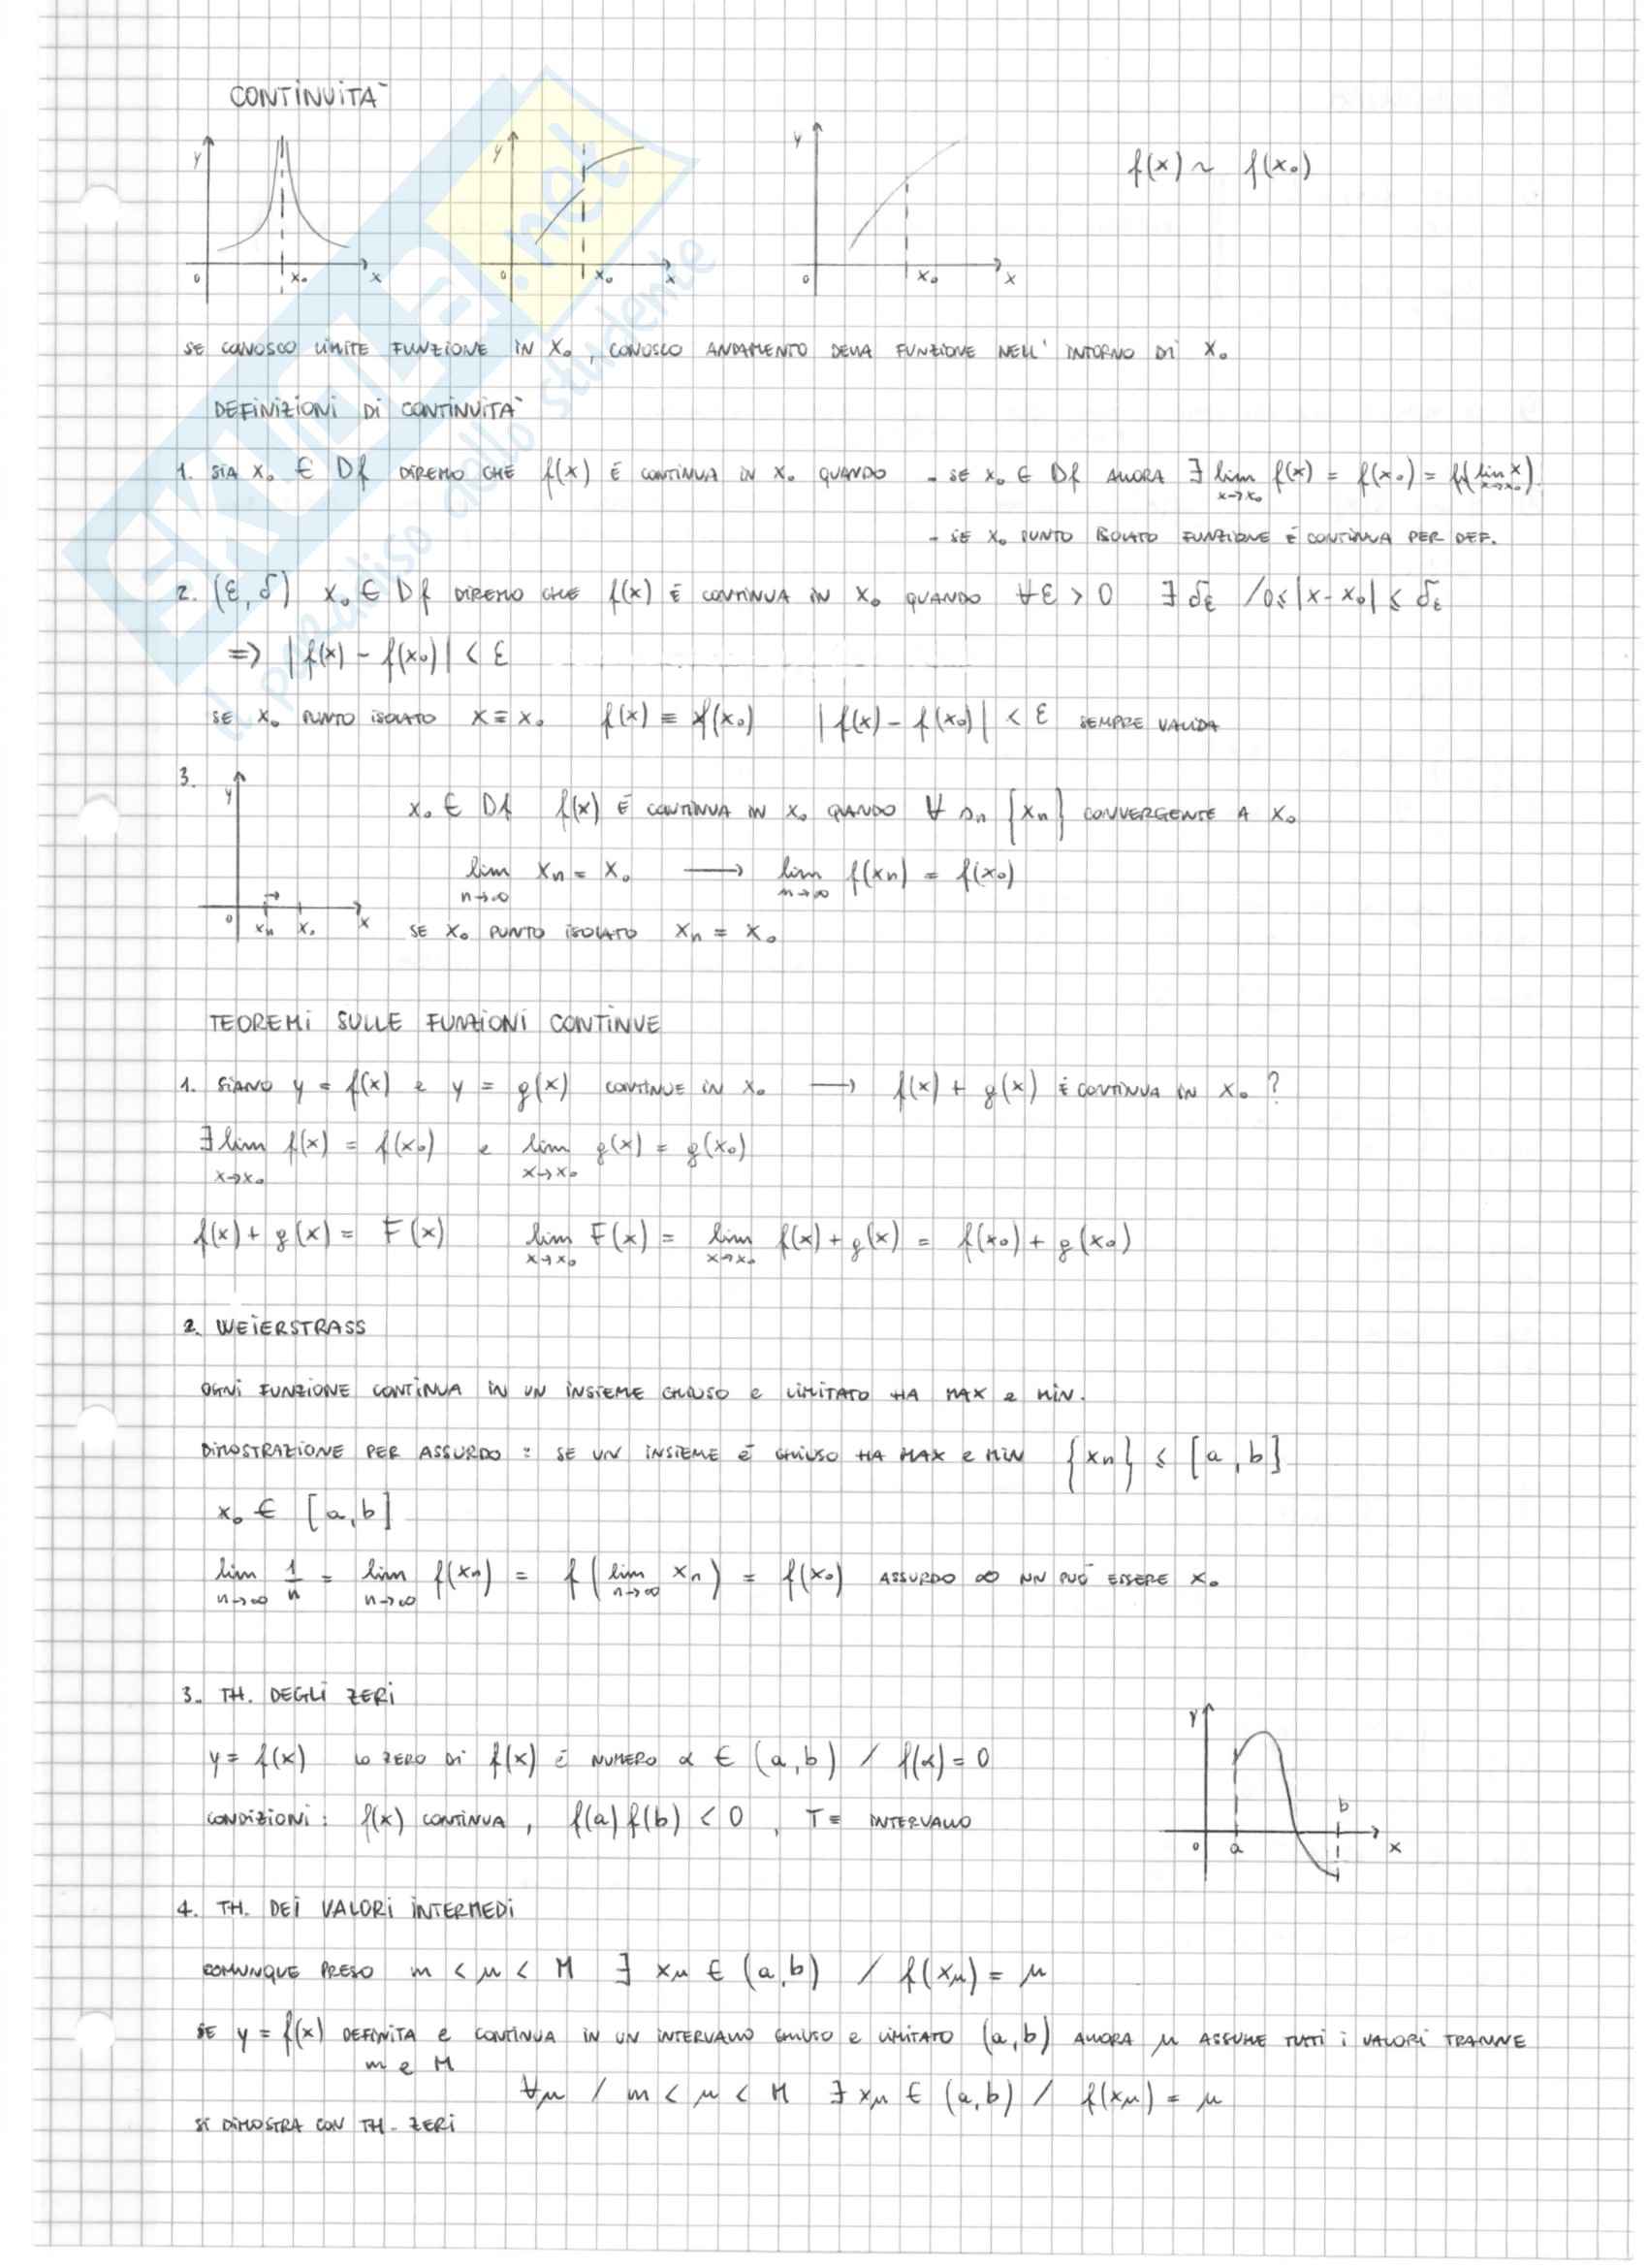 CONTINUITÀ
y y y f(x) ~ f(x₀)
0 x₀ x 0 x₀ x 0 x₀ x
SE CONOSCO LIMITE FUNZIONE IN X₀, CONOSCO ANDAMENTO DELLA FUNZIONE NELL' INTORNO DI X₀
DEFINIZIONI DI CONTINUITÀ
1. SIA X₀ ∈ Df DIREMO CHE f(x) È CONTINUA IN X₀ QUANDO - SE X₀ ∈ Df ALLORA ∃ lim x→x₀ f(x) = f(x₀) = f(lim x→x₀ x).
- SE X₀ PUNTO ISOLATO FUNZIONE È CONTINUA PER DEF.
2. (ε, δ) X₀ ∈ Df DIREMO CHE f(x) È CONTINUA IN X₀ QUANDO ∀ε > 0 ∃ δε / 0≤|x-x₀| ≤ δε
=> |f(x) - f(x₀)| < ε
SE X₀ PUNTO ISOLATO X ≡ X₀ f(x) ≡ f(x₀) |f(x) - f(x₀)| < ε SEMPRE VALIDA
3.
y
X₀ ∈ Df f(x) È CONTINUA IN X₀ QUANDO ∀ sn {xn} CONVERGENTE A X₀
lim n→∞ xn = x₀ → lim n→∞ f(xn) = f(x₀)
0 xn x₀ x
SE X₀ PUNTO ISOLATO xn = x₀
TEOREMI SULLE FUNZIONI CONTINUE
1. SIANO y = f(x) e y = g(x) CONTINUE IN X₀ → f(x) + g(x) È CONTINUA IN X₀ ?
∃ lim x→x₀ f(x) = f(x₀) e lim x→x₀ g(x) = g(x₀)
f(x) + g(x) = F(x) lim x→x₀ F(x) = lim x→x₀ f(x) + g(x) = f(x₀) + g(x₀)
2. WEIERSTRASS
OGNI FUNZIONE CONTINUA IN UN INSIEME CHIUSO e LIMITATO HA MAX e MIN.
DIMOSTRAZIONE PER ASSURDO : SE UN INSIEME È CHIUSO HA MAX e MIN {xn} ≤ [a,b]
x₀ ∈ [a,b]
lim n→∞ 1/n = lim n→∞ f(xn) = f(lim n→∞ xn) = f(x₀) ASSURDO ∞ NN PUÒ ESSERE X₀
3. TH. DEGLI ZERI
y = f(x) LO ZERO DI f(x) È NUMERO α ∈ (a,b) / f(α) = 0
CONDIZIONI : f(x) CONTINUA, f(a) f(b) < 0 , T = INTERVALLO
y
b
0 a x
4. TH. DEI VALORI INTERMEDI
COMUNQUE PRESO m < μ < M ∃ xμ ∈ (a,b) / f(xμ) = μ
SE y = f(x) DEFINITA e CONTINUA IN UN INTERVALLO CHIUSO e LIMITATO (a,b) ALLORA μ ASSUME TUTTI i VALORI TRANNE
m e M
∀μ / m < μ < M ∃ xμ ∈ (a,b) / f(xμ) = μ
SI DIMOSTRA CON TH. ZERI
SKUOLA.net
il paradiso dello studente